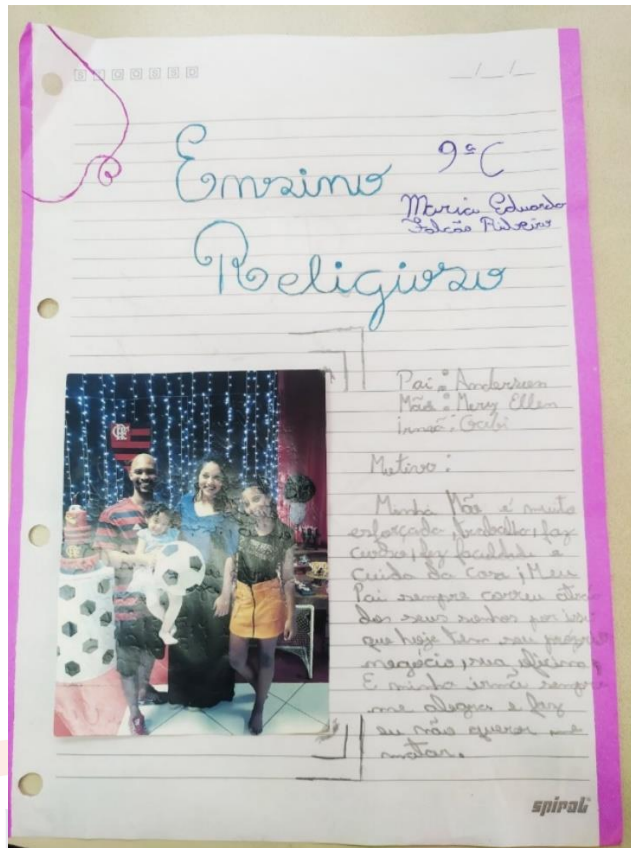 Ensino
9ª C
Maria Eduarda
Falcão Ribeiro
Religioso
Pai: Anderson
Mãe: Mery Ellen
irmã: Gabi
Motivo:
Minha Mãe é muito
esforçada, trabalha, faz
curso, fez faculdade e
cuida da casa; Meu
Pai sempre correu atrás
dos seus sonhos por isso
que hoje tem seu próprio
negócio, sua oficina,
E minha irmã sempre
me alegra e faz
eu não querer me
matar.
spiral